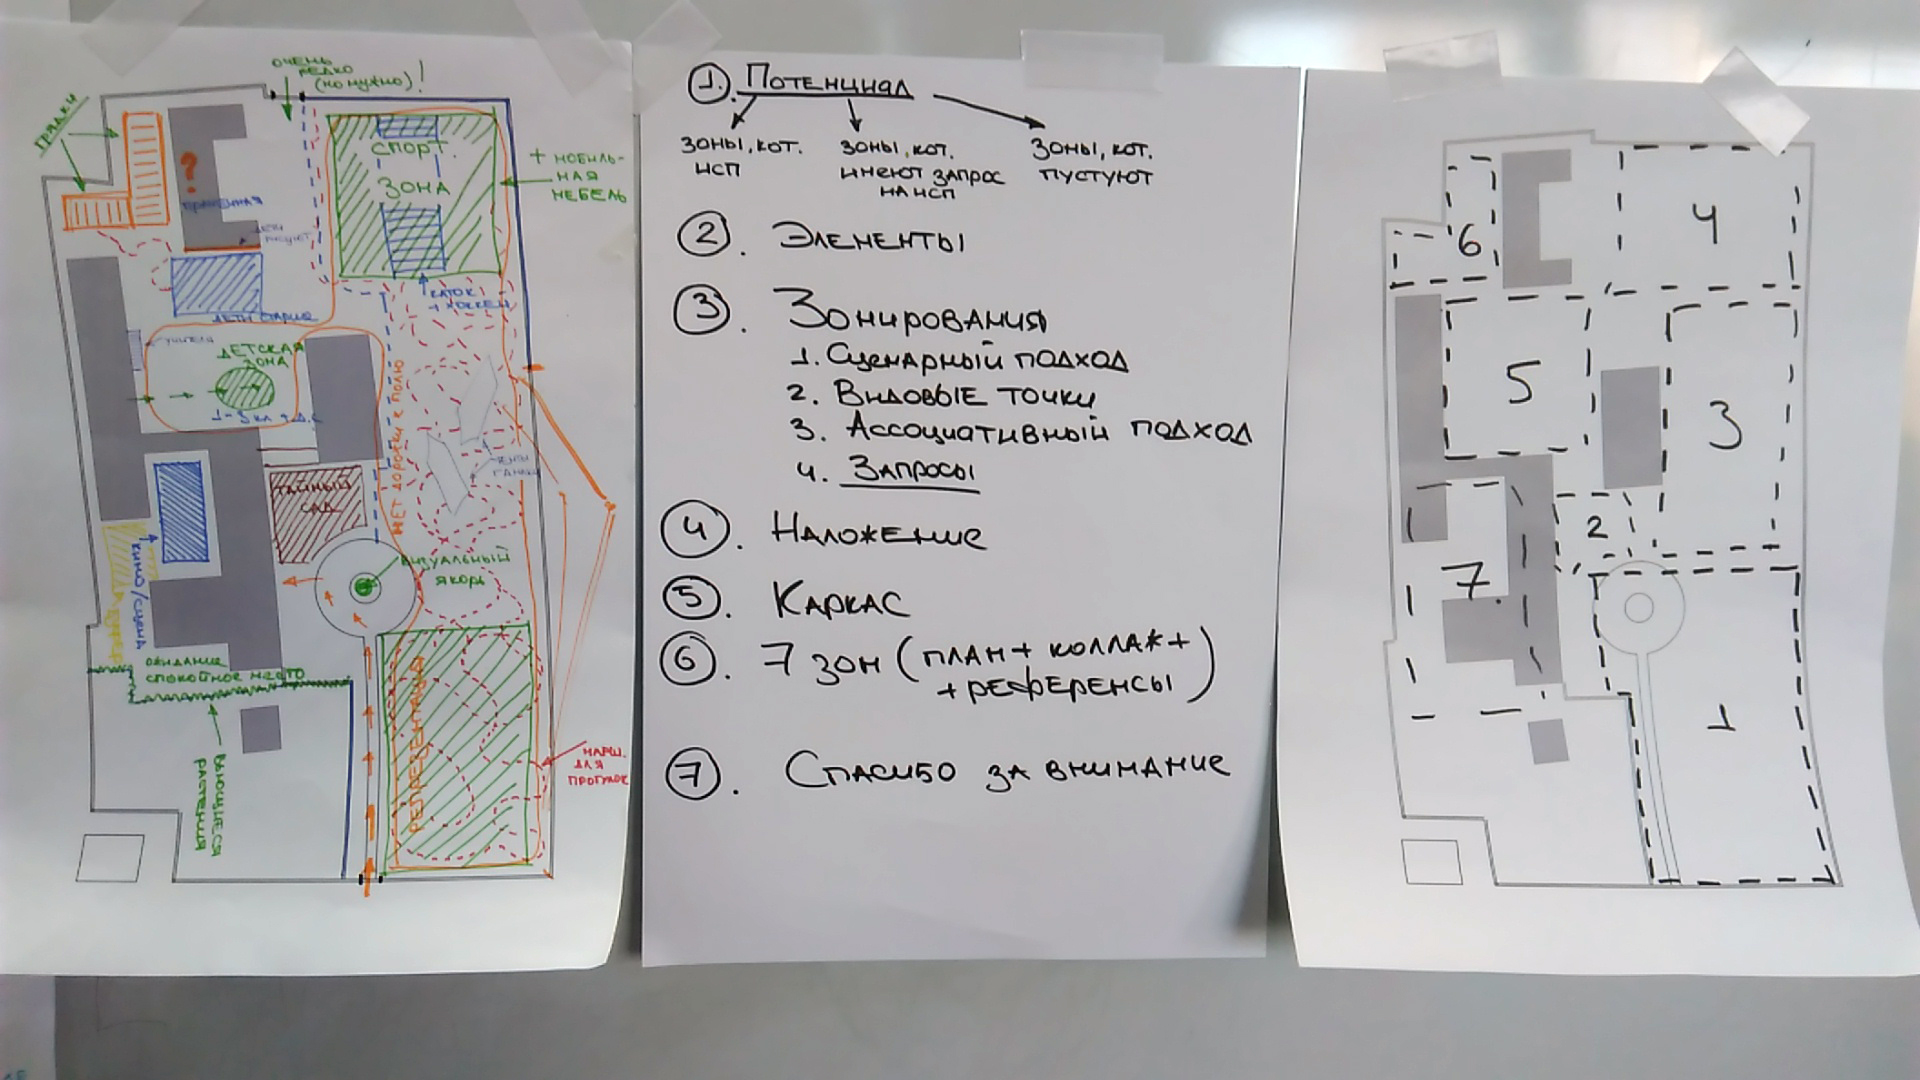 ОЧЕНЬ
РЕДКО
(НО НУЖНО)!
ГРЯДКИ
?
СПОРТ.
ЗОНА
+ МОБИЛЬ-
НАЯ
МЕБЕЛЬ
КАТОК
+ ХОККЕЙ
ДЕТИ
ДЕТСКАЯ
ЗОНА
НЕТ ДОРОЖКИ К ПОЛЮ
ТАЙНЫЙ
САД
ВИЗУАЛЬНЫЙ
ЯКОРЬ
КИНО/СЦЕНА
ОЖИДАНИЕ
СПОКОЙНОЕ МЕСТО
ВЬЮЩИЕСЯ
РАСТЕНИЯ
РЕПРЕЗЕНТАЦИЯ
МАРШ.
ДЛЯ
ПРОГУЛОК
1. ПОТЕНЦИАЛ
ЗОНЫ, КОТ.
ИСП
ЗОНЫ, КОТ.
ИМЕЮТ ЗАПРОС
НА ИСП
ЗОНЫ, КОТ.
ПУСТУЮТ
2. ЭЛЕМЕНТЫ
3. ЗОНИРОВАНИЯ
1. СЦЕНАРНЫЙ ПОДХОД
2. ВИДОВЫЕ ТОЧКИ
3. АССОЦИАТИВНЫЙ ПОДХОД
4. ЗАПРОСЫ
4. НАЛОЖЕНИЕ
5. КАРКАС
6. 7 ЗОН (ПЛАН + КОЛЛАЖ +
+ РЕФЕРЕНСЫ)
7. СПАСИБО ЗА ВНИМАНИЕ
6
4
5
3
2
7.
1